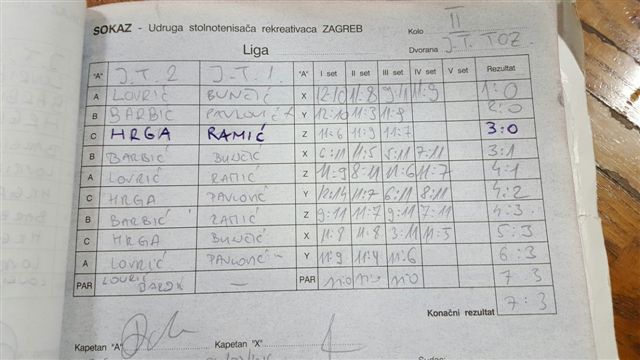 SOKAZ - Udruga stolnotenisača rekreativaca ZAGREB Kolo II
Liga Dvorana J.T. TOZ
"A" J.T. 2 J.T. 1. "A" I set II set III set IV set V set Rezultat
A LOVRIĆ BUNČIĆ X 12:10 11:8 9:11 11:9 1:0
B BARBIĆ PAVLOVIĆ Y 12:10 11:3 11:9 2:0
C HRGA RAMIĆ Z 11:6 11:9 11:7 3:0
B BARBIĆ BUNČIĆ X 6:11 11:5 5:11 7:11 3:1
A LOVRIĆ RAMIĆ Z 11:9 8:11 11:6 11:7 4:1
C HRGA PAVLOVIĆ Y 12:14 11:7 6:11 8:11 4:2
B BARBIĆ RAMIĆ Z 9:11 11:7 9:11 7:11 4:3
C HRGA BUNČIĆ X 11:8 11:8 3:11 11:5 5:3
A LOVRIĆ PAVLOVIĆ Y 11:9 11:4 11:6 6:3
PAR LOVRIĆ — 11:0 11:0 11:0 7 3
Konačni rezultat 7:3
Kapetan "A" Kapetan "X"